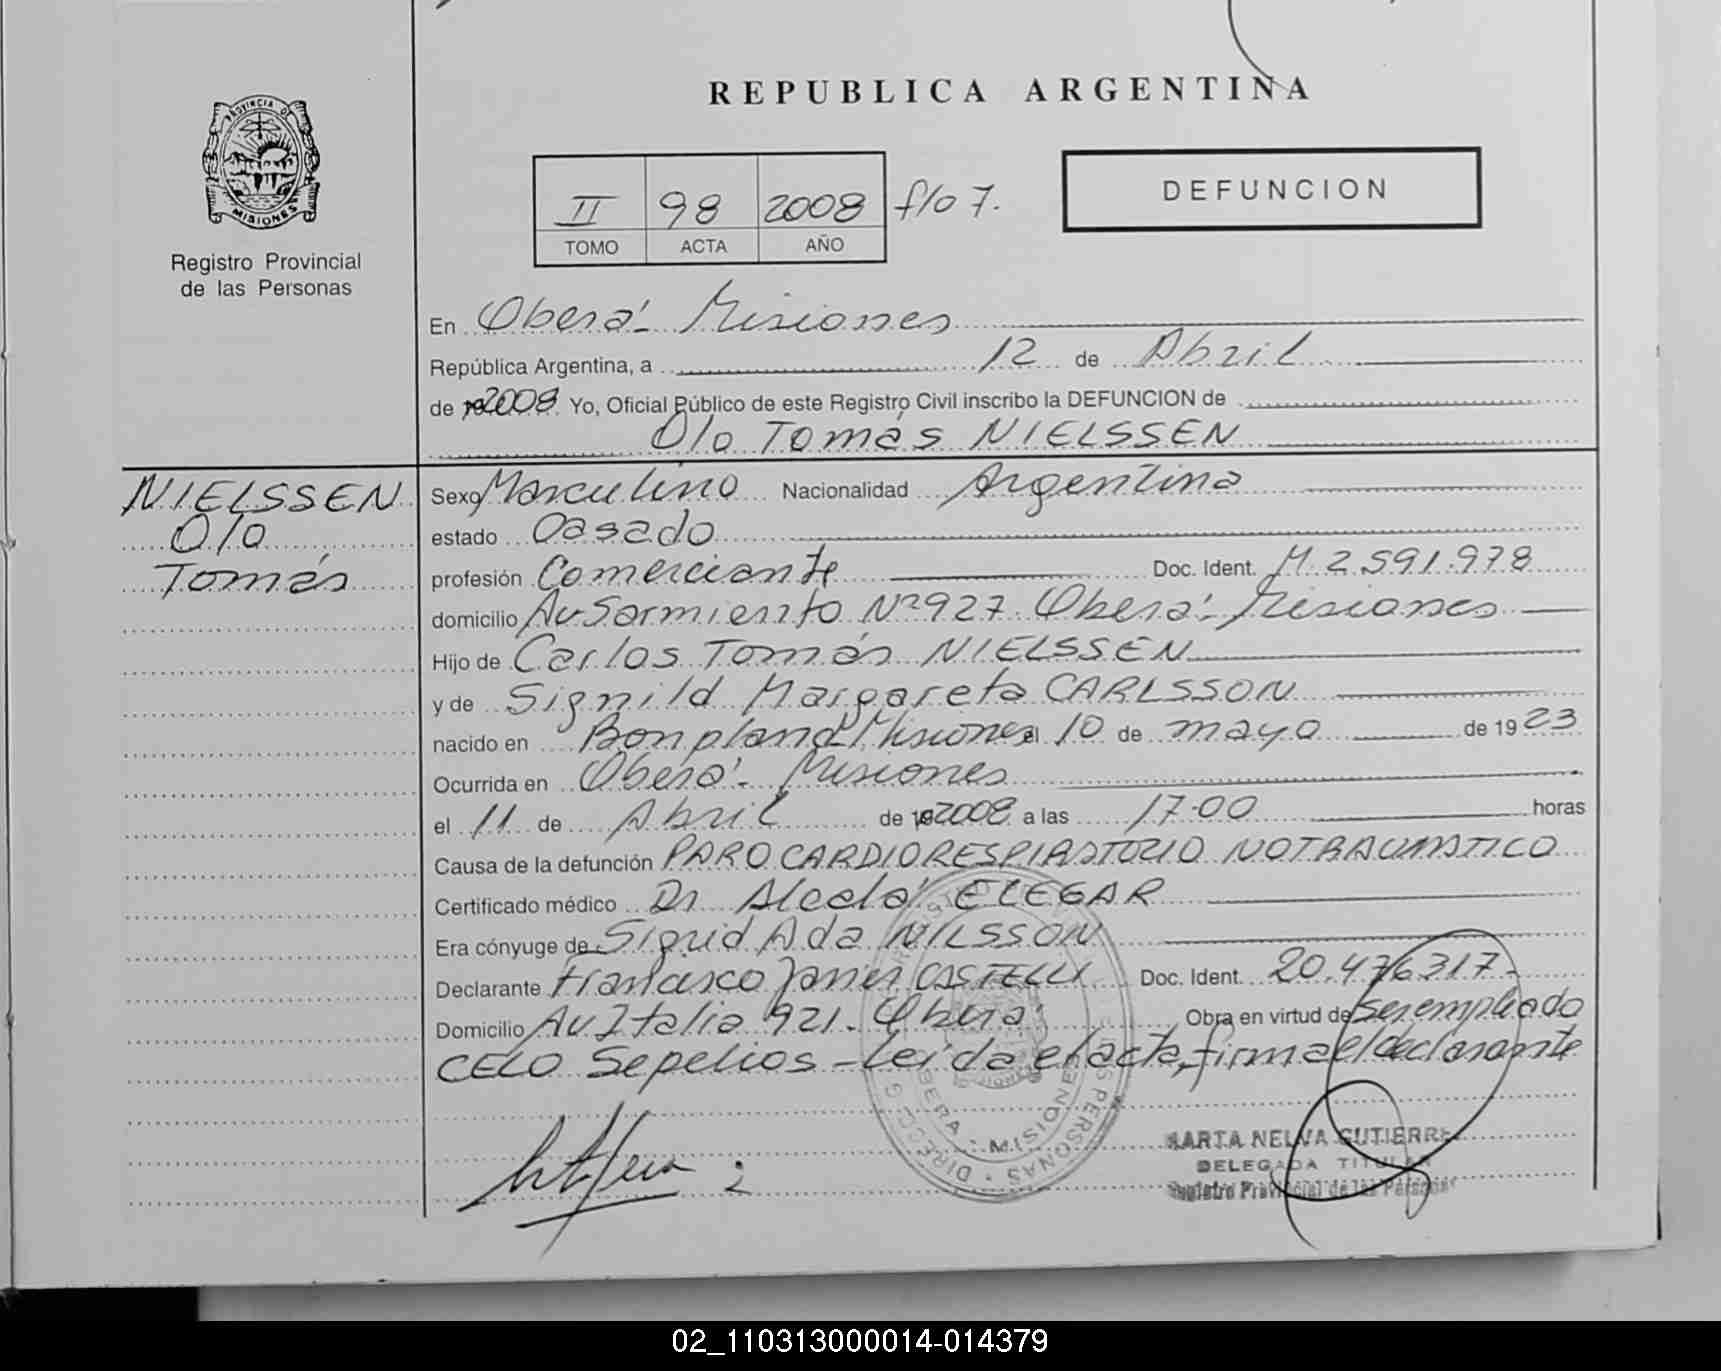 REPUBLICA ARGENTINA
PROVINCIA DE
MISIONES
Registro Provincial
de las Personas
II 98 2008 f/o 7.
TOMO ACTA AÑO
DEFUNCION
En Oberá - Misiones
República Argentina, a 12 de Abril
de 2008. Yo, Oficial Público de este Registro Civil inscribo la DEFUNCION de
Olo Tomás NIELSSEN
NIELSSEN
Olo
Tomás
Sexo Masculino Nacionalidad Argentina
estado Casado
profesión Comerciante Doc. Ident. M. 2.591.978
domicilio Av Sarmiento Nº 927 Oberá - Misiones
Hijo de Carlos Tomás NIELSSEN
y de Signild Margareta CARLSSON
nacido en Bonpland Misiones el 10 de mayo de 1923
Ocurrida en Oberá - Misiones
el 11 de Abril de 2008 a las 17.00 horas
Causa de la defunción PARO CARDIORESPIRATORIO NO TRAUMATICO
Certificado médico Dr. ELEGAR
Era cónyuge de Sigrid Ada NILSSON
Declarante Francisco Javier CASTELLI Doc. Ident. 20.476317-
Domicilio Av. Italia 921. Oberá Obra en virtud de ser empleado
CELO Sepelios - Leída el acta, firma el declarante
OBERA - MISIONES
MARTA NELVA GUTIERREZ
DELEGADA TITULAR
Registro Provincial de las Personas
02_110313000014-014379